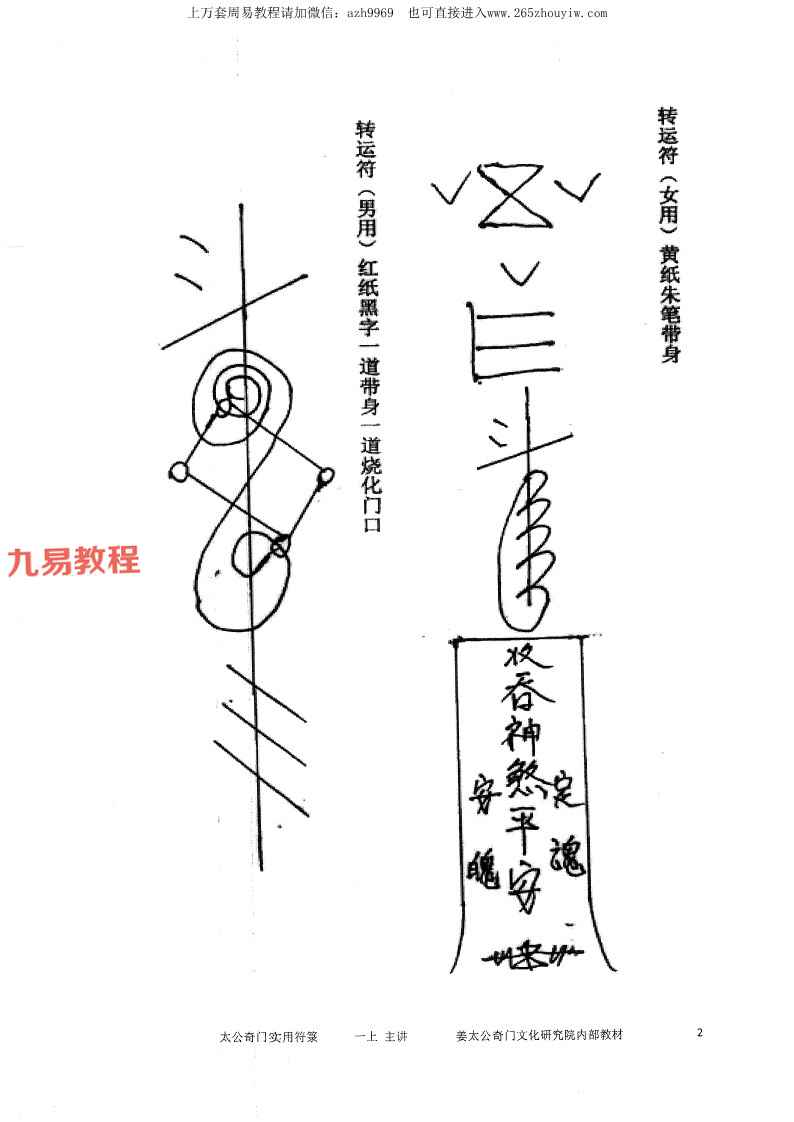 上万套周易教程请加微信：azh9969 也可直接进入www.265zhouyiw.com
转运符（女用）黄纸朱笔带身
转运符（男用）红纸黑字一道带身一道烧化门口
九易教程
吞神煞平安
定魂
安魄
太公奇门实用符箓 一上 主讲 姜太公奇门文化研究院内部教材 2